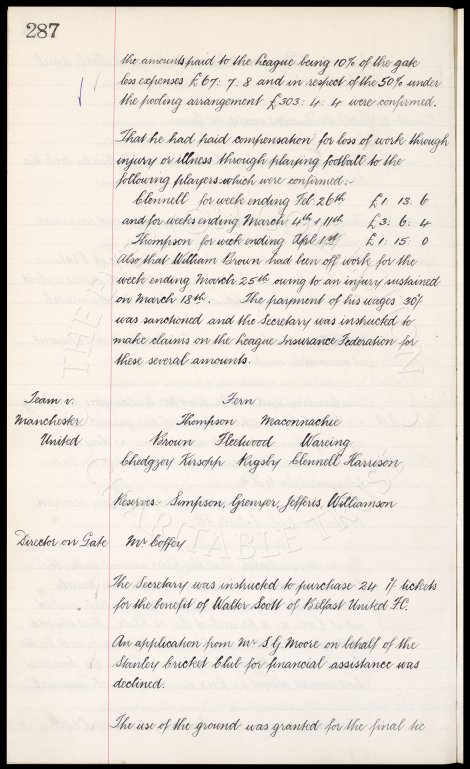 287
the amounts paid to the League being 10% of the gate
less expenses £67: 7: 8 and in respect of the 50% under
the pooling arrangement £303: 4: 4 were confirmed.
That he had paid compensation for loss of work through
injury or illness through playing football to the
following players which were confirmed:-
Clennell for week ending Feb: 26th £1: 13: 6
and for weeks ending March 4th & 11th £3: 6: 4
Thompson for week ending Apl. 1st £1: 15: 0
Also that William Brown had been off work for the
week ending March 25th owing to an injury sustained
on March 18th. The payment of his wages 30/-
was sanctioned and the Secretary was instructed to
make claims on the League Insurance Federation for
these several amounts.
Team v. Fern
Manchester Thompson Maconnachie
United Brown Fleetwood Wareing
Chedgzoy Kirsopp Rigsby Clennell Harrison
Reserves:- Simpson, Grenyer, Jefferis, Williamson
Director on Gate Mr Coffey
The Secretary was instructed to purchase 24 1/- tickets
for the benefit of Walter Scott of Belfast United F.C.
An application from Mr S.G. Moore on behalf of the
Stanley Cricket Club for financial assistance was
declined.
The use of the ground was granted for the final tie